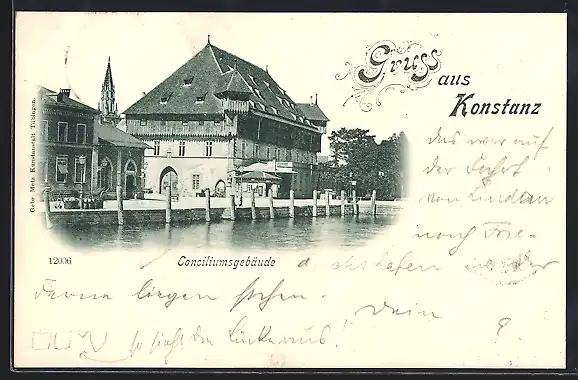 Gruss
aus
Konstanz
Gebr Metz Kunstanstalt Tübingen
12006
Conciliumsgebäude
das war auf
der Fahrt
von Lindau
nach Frie-
drichshafen
liegen sehen.
Dein
so sieht die Linke aus!